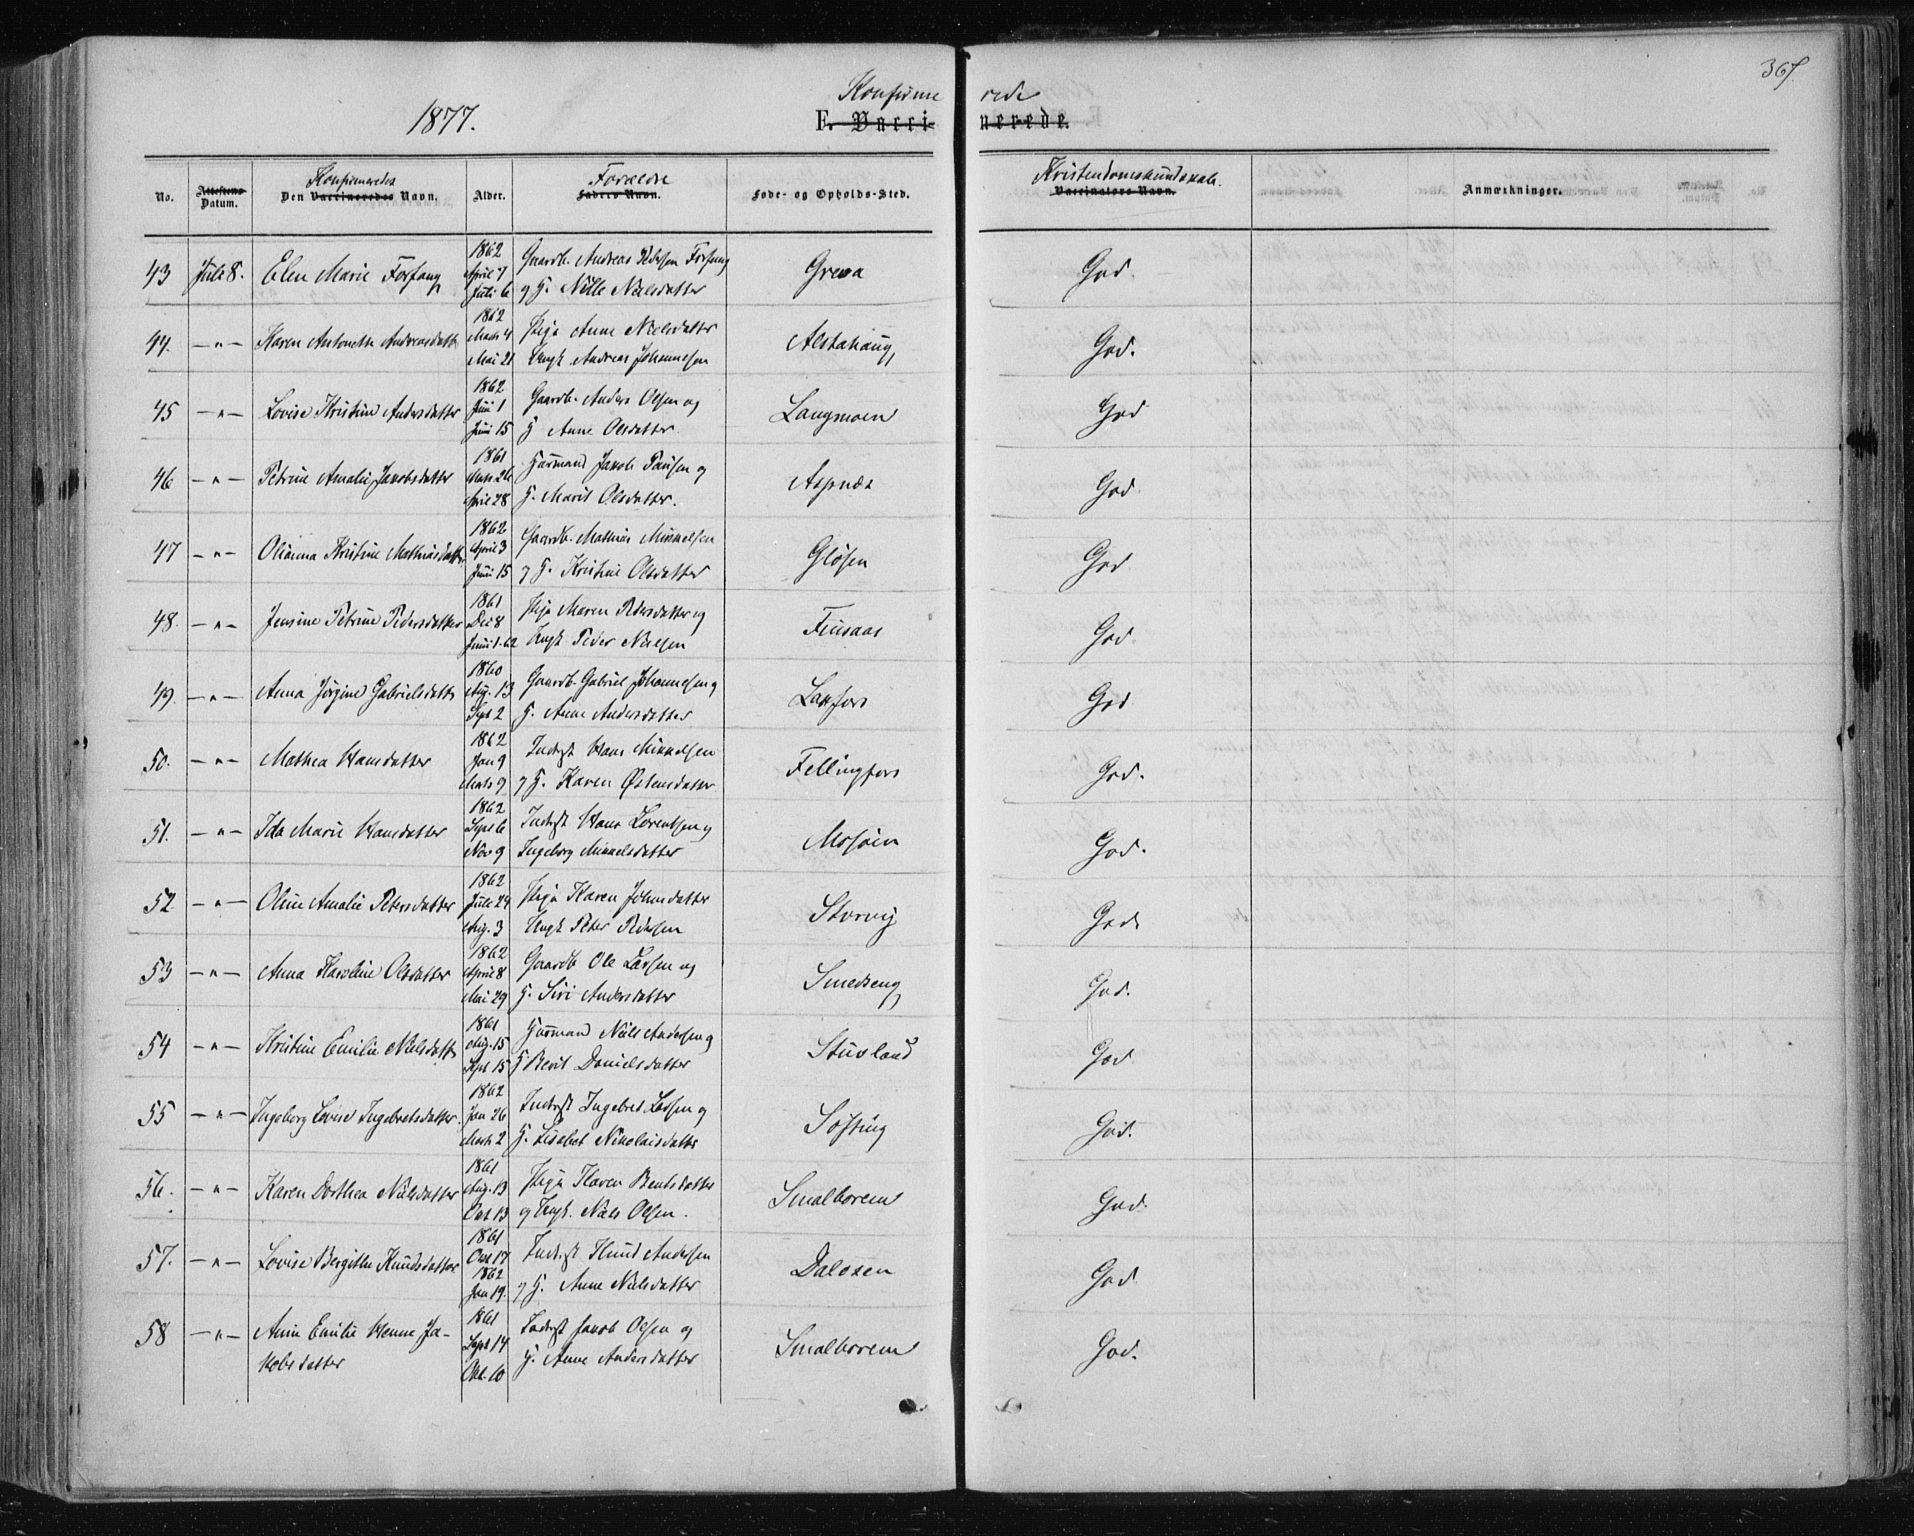 367.
1877.
Konfirmerede
F. Vaccinerede.
No.
Attestens Datum.
Konfirmeredes
Den Vaccineredes Navn.
Alder.
Forældre
Faders Navn.
Føde- og Opholds-Sted.
Kristendomskundskab.
Vaccinators Navn.
Anmærkninger.
43 Juli 8. Elen Marie Forfang 1862 April 7 Juli 6 Gaardb. Andreas Pedersen Forfang og H. Nille Nielsdatter Greva God.
44. —"— Karen Antonette Andreasdatt 1862 Marts 4 Mai 21 Pige Anne Nielsdatter Ungk Andreas Johannesen Alstahaug God.
45 —"— Lovise Kristine Andersdatter 1862 Juni 1 Juni 15 Gaardb. Anders Olsen og H Anne Olsdatter. Langmoen God
46 —"— Petrine Amalie Jakobsdatter 1861 Marts 26 April 28 Husmand Jakob Paulsen og H. Marit Olsdatter. Aspnæs God.
47 —"— Olianna Kristine Mathiasdatter 1862 April 3 Juni 15 Gaardb. Mathias Mikkelsen og H. Kristine Olsdatter Gløsen God
48. —"— Jensine Petrine Pedersdatter 1861 Dec 8 Juni 1. 62 Pige Maren Pedersdatter og Ungk Peder Nielsen Fiusaas God
49. —"— Anna Jørgine Gabrielsdatter 1860 Aug. 13 Sept 2 Gaardb. Gabriel Johannesen og H. Anne Andersdatter Laxfors God
50. —"— Mathea Hansdatter 1862 Jan 9 Marts 9 Inderst Hans Mikkelsen og H. Karen Østensdatter Fellingfors God.
51. —"— Ida Marie Hansdatter 1862 Sept 6 Nov 9 Inderst Hans Lorentsen og Ingeborg Mikkelsdatter Mosjøen God.
52 —"— Oline Amalie Petersdatter 1862 Juli 24 Aug. 3 Pige Karen Johnsdatter Ungk Peter Pedersen Storvig God.
53 —"— Anna Karoline Olsdatter 1862 April 8 Mai 29 Gaardb Ole Larsen og H. Siri Andersdatter Smedseng God.
54 —"— Kristine Emilie Nielsdatt 1861 Aug. 15 Sept 15 Husmand Niels Andersen og H Berit Danielsdatter Stusland God
55 —"— Ingeborg Lovise Ingebretsdatter 1862 Jan 26 Marts 2 Inderst Ingebret Larsen og H. Lisabet Nikolaisdatter Søfting God.
56. —"— Karen Dorthea Nielsdatter 1861 Aug. 13 Oct 13 Pige Karen Bentsdatter og Ungk. Niels Olsen. Smalborem God.
57. —"— Lovise Bergithe Knudsdatter 1861 Oct 17 1862 Jan 19. Inderst Knud Andersen og H. Anne Nielsdatter Dalosen God
58 —"— Anne Emilie Hemme Ja- 1861 Sept 14 Okt. 10 Inderst Jakob Olsen og H. Anne Andersdatter Smalborem God.
kobsdatter